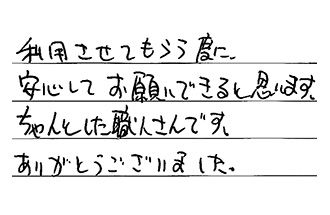 利用させてもらう度に、
安心してお願いできると思います。
ちゃんとした職人さんです。
ありがとうございました。